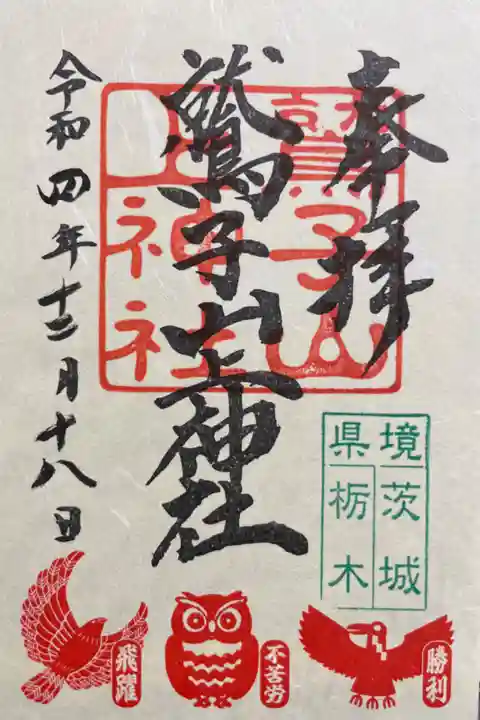 奉拝
鷲子山上神社
令和四年十二月十八日
鷲子山
上神社
境茨城
県栃木
飛躍
不苦労
勝利